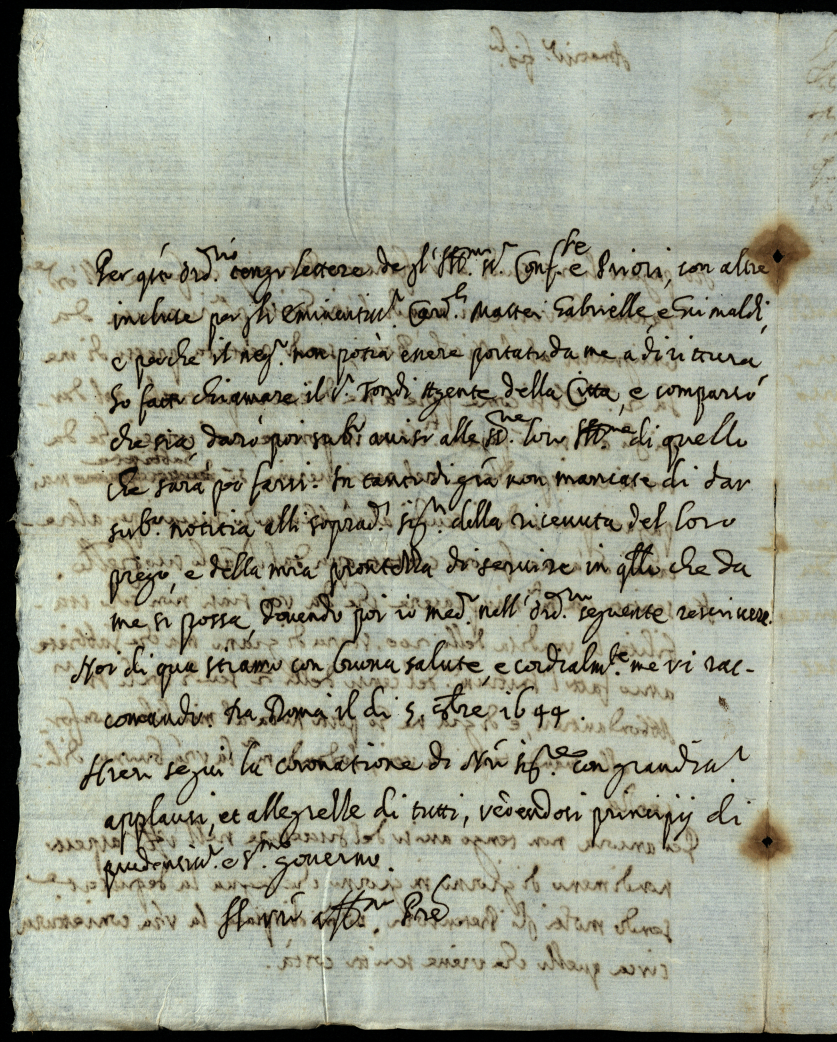 Per q.to ord.rio tengo lettere degl' Ill.mi SS.ri Conf.re e Priori, con altre
incluse per gli Eminentiss.i Card.li Mattei Gabrielle e Grimaldi,
e perche il neg.o non potrà essere portato da me a dirittura
ho fatto chiamare il S.r Tondi Agente della Città, e comparso
che sia, darò poi sub.o aviso alle SS.rie loro Ill.me di quello
che sarà per farsi. In tanto di già non mancate di dar
sub.o notitia alli soprad.i sig.ri della ricevuta del loro
prego, e della mia prontezza di servire in q.llo che da
me si possa, dovendo poi io med.o nell' ord.rio seguente rescrivere.
Noi di qua stiamo con buona salute, e cordialm.te me vi rac-
comando. Da Roma il di 5. 8bre 1644.
Hieri segui la coronatione di N.ro Sig.re con grandiss.i
applausi, et allegrezze di tutti, vedendosi principij di
prudentiss.o e S.mo governo.
Aff.mo P.re